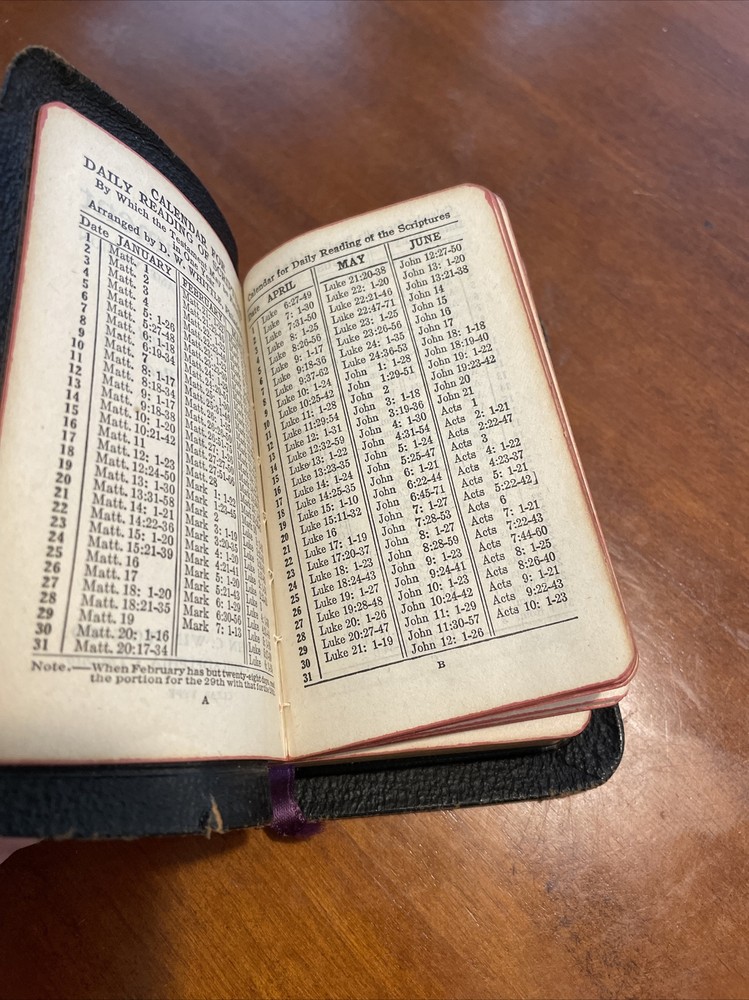 CALENDAR FOR
DAILY READING OF
By Which the
Arranged by D. W. WHITTLE
Date JANUARY
1 Matt. 1
2 Matt. 2
3 Matt. 3
4 Matt. 4
5 Matt. 5: 1-26
6 Matt. 5:27-48
7 Matt. 6: 1-18
8 Matt. 6:19-34
9 Matt. 7
10 Matt. 8: 1-17
11 Matt. 8:18-34
12 Matt. 9: 1-17
13 Matt. 9:18-38
14 Matt. 10: 1-20
15 Matt. 10:21-42
16 Matt. 11
17 Matt. 12: 1-23 Matt. 28
18 Matt. 12:24-50 Mark 1: 1-22
19 Matt. 13: 1-30 Mark 1:23-45
20 Matt. 13:31-58 Mark 2
21 Matt. 14: 1-21 Mark 3: 1-19
22 Matt. 14:22-36 Mark 3:20-35
23 Matt. 15: 1-20 Mark 4: 1-20
24 Matt. 15:21-39 Mark 4:21-41
25 Matt. 16 Mark 5: 1-20
26 Matt. 17 Mark 5:21-43
27 Matt. 18: 1-20 Mark 6: 1-29
28 Matt. 18:21-35 Mark 6:30-56
29 Matt. 19 Mark 7: 1-13
30 Matt. 20: 1-16
31 Matt. 20:17-34
Note.—When February has but twenty-eight days,
the portion for the 29th with that for the
A
Calendar for Daily Reading of the Scriptures
Date APRIL MAY JUNE
1 Luke 6:27-49 Luke 21:20-38 John 12:27-50
2 Luke 7: 1-30 Luke 22: 1-20 John 13: 1-20
3 Luke 7:31-50 Luke 22:21-46 John 13:21-38
4 Luke 8: 1-25 Luke 22:47-71 John 14
5 Luke 8:26-56 Luke 23: 1-25 John 15
6 Luke 9: 1-17 Luke 23:26-56 John 16
7 Luke 9:18-36 Luke 24: 1-35 John 17
8 Luke 9:37-62 Luke 24:36-53 John 18: 1-18
9 Luke 10: 1-24 John 1: 1-28 John 18:19-40
10 Luke 10:25-42 John 1:29-51 John 19: 1-22
11 Luke 11: 1-28 John 2 John 19:23-42
12 Luke 11:29-54 John 3: 1-18 John 20
13 Luke 12: 1-31 John 3:19-36 John 21
14 Luke 12:32-59 John 4: 1-30 Acts 1
15 Luke 13: 1-22 John 4:31-54 Acts 2: 1-21
16 Luke 13:23-35 John 5: 1-24 Acts 2:22-47
17 Luke 14: 1-24 John 5:25-47 Acts 3
18 Luke 14:25-35 John 6: 1-21 Acts 4: 1-22
19 Luke 15: 1-10 John 6:22-44 Acts 4:23-37
20 Luke 15:11-32 John 6:45-71 Acts 5: 1-21
21 Luke 16 John 7: 1-27 Acts 5:22-42]
22 Luke 17: 1-19 John 7:28-53 Acts 6
23 Luke 17:20-37 John 8: 1-27 Acts 7: 1-21
24 Luke 18: 1-23 John 8:28-59 Acts 7:22-43
25 Luke 18:24-43 John 9: 1-23 Acts 7:44-60
26 Luke 19: 1-27 John 9:24-41 Acts 8: 1-25
27 Luke 19:28-48 John 10: 1-23 Acts 8:26-40
28 Luke 20: 1-26 John 10:24-42 Acts 9: 1-21
29 Luke 20:27-47 John 11: 1-29 Acts 9:22-43
30 Luke 21: 1-19 John 11:30-57 Acts 10: 1-23
31 John 12: 1-26
B